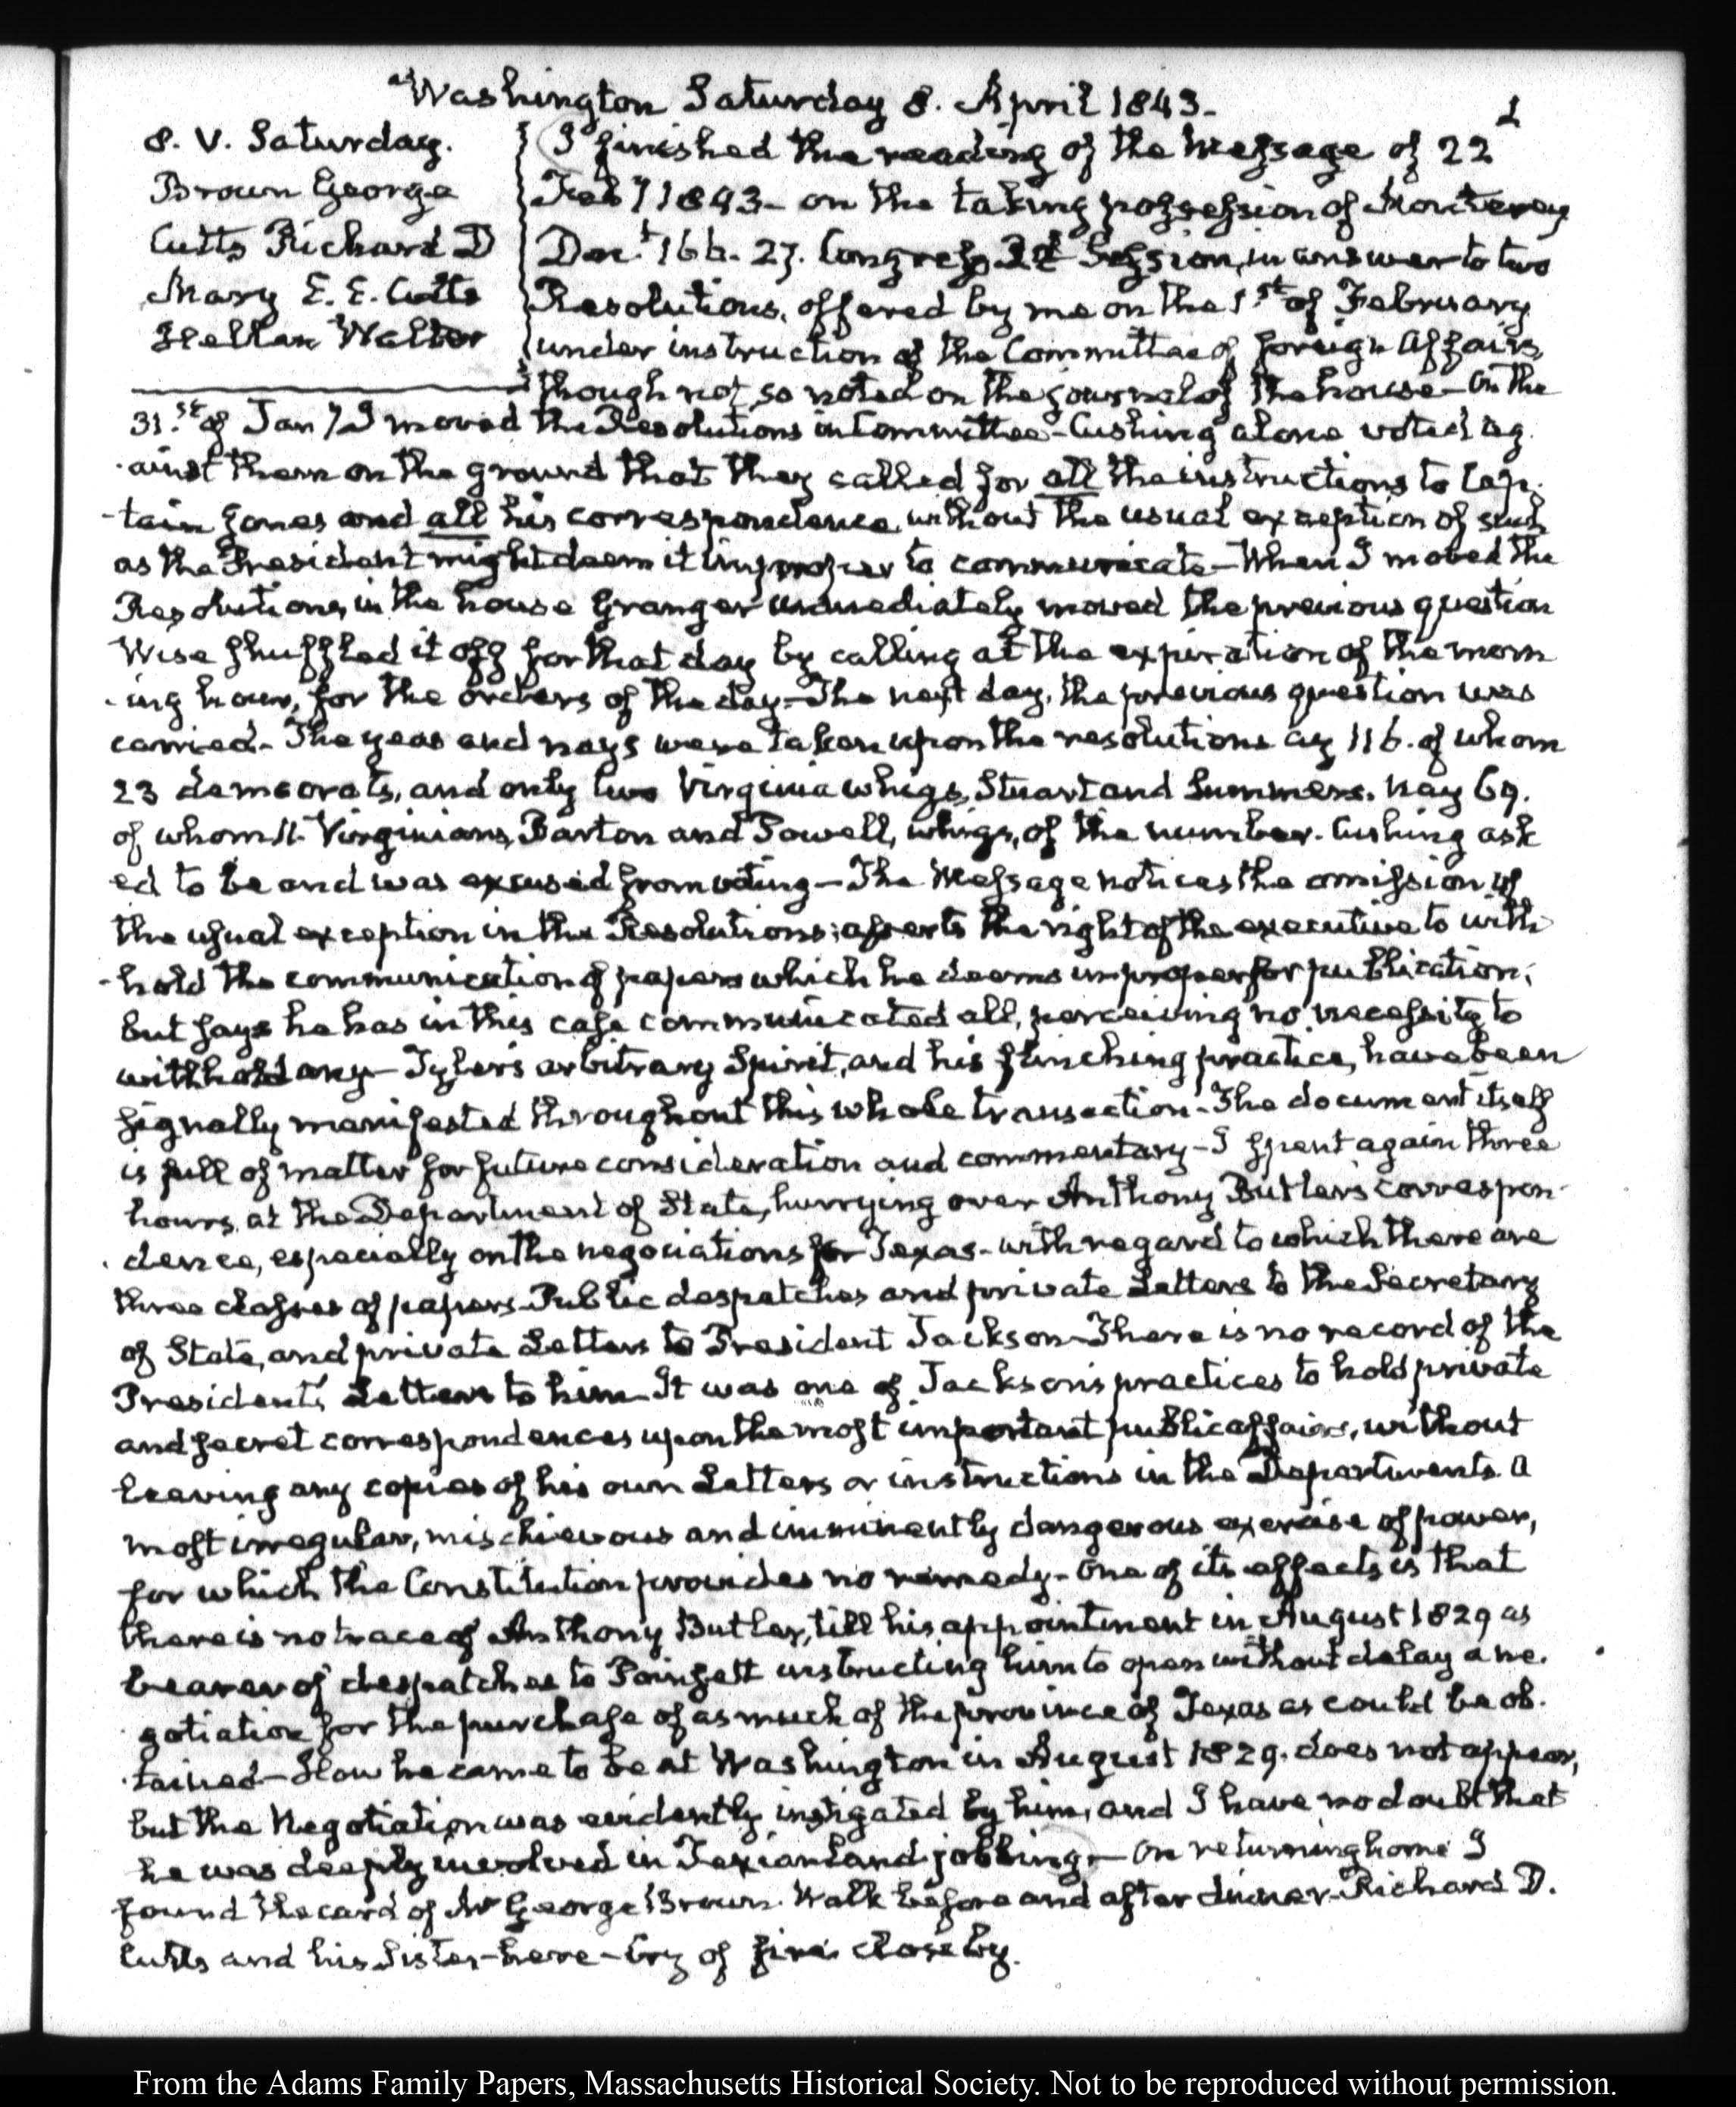 Washington Saturday 8. April 1843-
1
8. V. Saturday.
Brown George
Cutts Richard D
Mary E. E. Cutts
Hellen Walter
I finished the reading of the Message of 22
Feby 1843- on the taking possession of Monterey
Doct. 166. 27. Congress 3d Session, in answer to two
Resolutions, offered by me on the 1st of February
under instruction of the Committee of foreign Affairs,
though not so noted on the journal of the house- On the
31st of Jany I moved the Resolutions in Committee- Cushing alone voted ag
ainst them on the ground that they called for all the instructions to Cap-
-tain Jones and all his correspondence without the usual exception of such
as the President might deem it improper to communicate- When I moved the
Resolutions, in the house Granger immediately moved the previous question
Wise shuffled it off for that day by calling at the expiration of the morn
-ing hour, for the orders of the day- The next day, the previous question was
carried- The yeas and nays were taken upon the resolutions ay 116. of whom
23 democrats, and only two Virginia whigs, Stuart and Summers. nay 69.
of whom 11. Virginians, Barton and Powell, whigs, of the number- Cushing ask
ed to be and was excused from voting- The Message notices the omission of
the usual exception in the Resolutions; asserts the right of the executive to with
-hold the communication of papers which he deems improper for publication;
but says he has in this case communicated all, perceiving no necessity to
withhold any- Tyler's arbitrary Spirit, and his flinching practice, have been
signally manifested throughout this whole transaction- The document itself
is full of matter for future consideration and commentary- I spent again three
hours, at the Department of State, hurrying over Anthony Butler's correspon
-dence, especially on the negociations for Texas- with regard to which there are
three classes of papers- Public despatches and private Letters to the Secretary
of State, and private Letters to President Jackson- There is no record of the
President's Letters to him- It was one of Jackson's practices to hold private
and secret correspondences upon the most important public affairs, without
leaving any copies of his own Letters or instructions in the Departments. A
most irregular, mischievous and imminently dangerous exercise of power,
for which the Constitution provides no remedy- One of its effects is that
there is no trace of Anthony Butler, till his appointment in August 1829 as
bearer of despatches to Poinsett instructing him to open without delay a ne-
gotiation for the purchase of as much of the province of Texas as could be ob-
-tained- How he came to be at Washington in August 1829. does not appear,
but the Negotiation was evidently instigated by him, and I have no doubt that
he was deeply involved in Texian land-jobbing- On returning home I
found the card of Mr George Brown. Walk before and after dinner- Richard D.
Cutts and his Sister- here- Cry of fire close by.
From the Adams Family Papers, Massachusetts Historical Society. Not to be reproduced without permission.